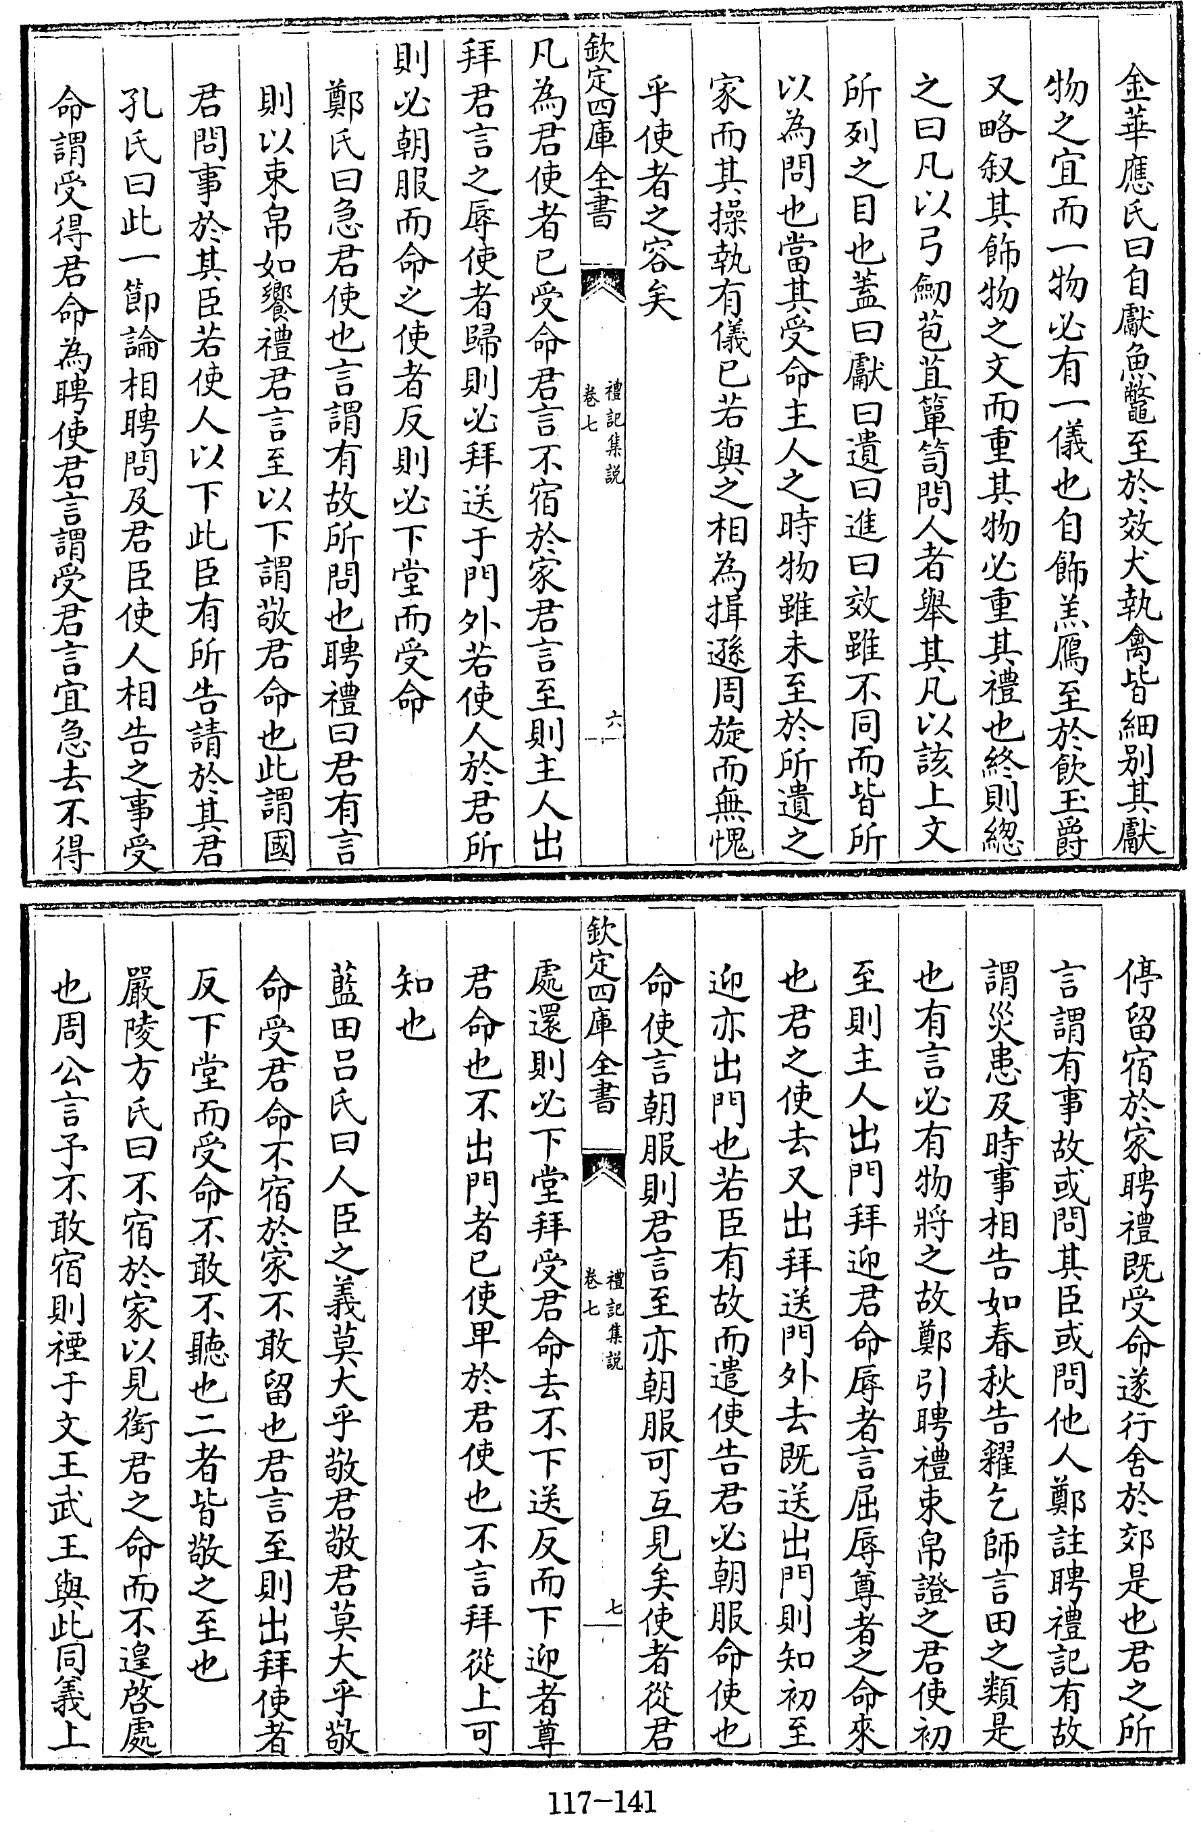 金華應氏曰自獻魚鼈至於效犬執禽皆細别其獻
物之宜而一物必有一儀也自飾羔鴈至於飲玉爵
又略叙其飾物之文而重其物必重其禮也終則總
之曰凡以弓劒苞苴簞笥問人者舉其凡以該上文
所列之目也蓋曰獻曰遺曰進曰效雖不同而皆所
以為問也當其受命主人之時物雖未至於所遺之
家而其操執有儀已若與之相為揖遜周旋而無愧
乎使者之容矣
欽定四庫全書
禮記集説
卷七
六
凡為君使者已受命君言不宿於家君言至則主人出
拜君言之辱使者歸則必拜送于門外若使人於君所
則必朝服而命之使者反則必下堂而受命
鄭氏曰急君使也言謂有故所問也聘禮曰君有言
則以束帛如饗禮君言至以下謂敬君命也此謂國
君問事於其臣若使人以下此臣有所告請於其君
孔氏曰此一節論相聘問及君臣使人相告之事受
命謂受得君命為聘使君言謂受君言宜急去不得
停留宿於家聘禮既受命遂行舍於郊是也君之所
言謂有事故或問其臣或問他人鄭註聘禮記有故
謂災患及時事相告如春秋告糴乞師言田之類是
也有言必有物將之故鄭引聘禮束帛證之君使初
至則主人出門拜迎君命辱者言屈辱尊者之命來
也君之使去又出拜送門外去既送出門則知初至
迎亦出門也若臣有故而遣使告君必朝服命使也
命使言朝服則君言至亦朝服可互見矣使者從君
欽定四庫全書
禮記集説
卷七
七
處還則必下堂拜受君命去不下送反而下迎者尊
君命也不出門者已使卑於君使也不言拜從上可
知也
藍田吕氏曰人臣之義莫大乎敬君敬君莫大乎敬
命受君命不宿於家不敢留也君言至則出拜使者
反下堂而受命不敢不聽也二者皆敬之至也
嚴陵方氏曰不宿於家以見銜君之命而不遑啓處
也周公言予不敢宿則禋于文王武王與此同義上
117-141